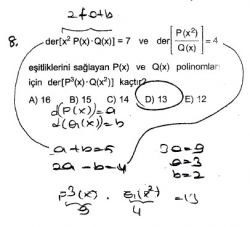 2+a+b
8.
der[x² P(x)·Q(x)] = 7 ve der[P(x²)/Q(x)] = 4
eşitliklerini sağlayan P(x) ve Q(x) polinomları
için der[P³(x)·Q(x²)] kaçtır?
A) 16 B) 15 C) 14 D) 13 E) 12
d(P(x)) = a
d(Q(x)) = b
a+b=5 3a=9
2a-b=4 a=3
b=2
P³(x) · Q(x²) = 13
9 4